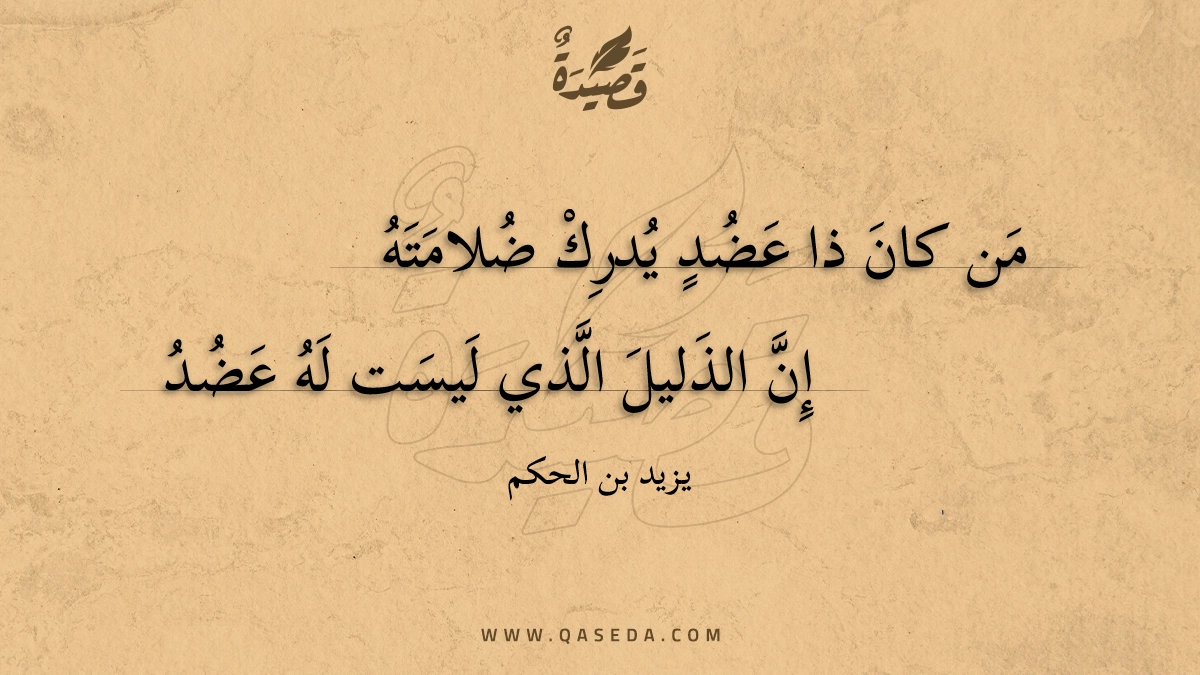 قَصِيدَةٌ
مَن كانَ ذا عَضُدٍ يُدرِكْ ضُلامَتَهُ
إِنَّ الذَليلَ الَّذي لَيسَت لَهُ عَضُدُ
يزيد بن الحكم
WWW.QASEDA.COM